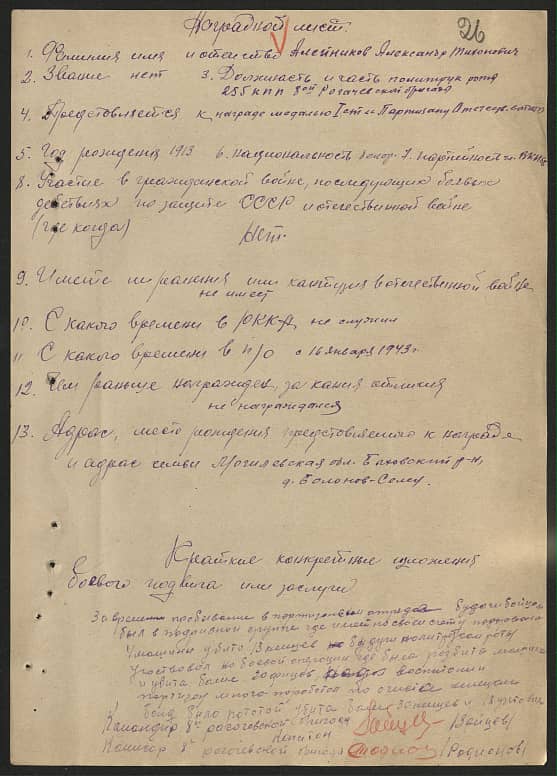 26
Наградной лист.
1. Фамилия имя и отчество Александр Тихонович
2. Звание нет 3. Должность и часть политрук роты
255 КПП 8ой Рогачевской бригады
4. Представляется к награде медалью I ст. Партизану Отечеств. войны
5. Год рождения 1913 6. Национальность 7. партийность ВКП(б)
8. Участие в гражданской войне, последующих боевых
действиях по защите СССР и отечественной войне
(где когда) Нет.
9. Имеете ли ранения или контузия в отечественной войне
не имеет
10. С какого времени в РККА не служил
11 С какого времени в п/о с 16 января 1943 г.
12. Чем раньше награжден, за какия отличия
не награждался
13. Адрес, место рождения представляемого к награде
и адрес семьи Могилевская обл. Быховский р-н,
д.
Краткие конкретные изложения
боевого подвига или заслуги
За время пребывание в партизанском отряде будучи бойцом
был в подрывной группе где имеет на своем счету
убито будучи политруком роты
Участвовал на боевой операции где была разбита
и убита более
много поработал по
было ротой убита более
Командир 8й рогачевской бригады (Зайцев)
Капитан
Комисар 8й рогачевской бригады (Родионов)